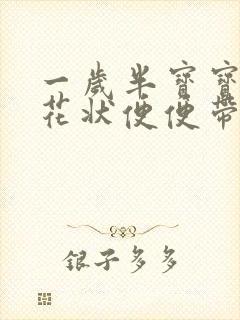 一歲半寶寶
花狀便便帶
銀子多多